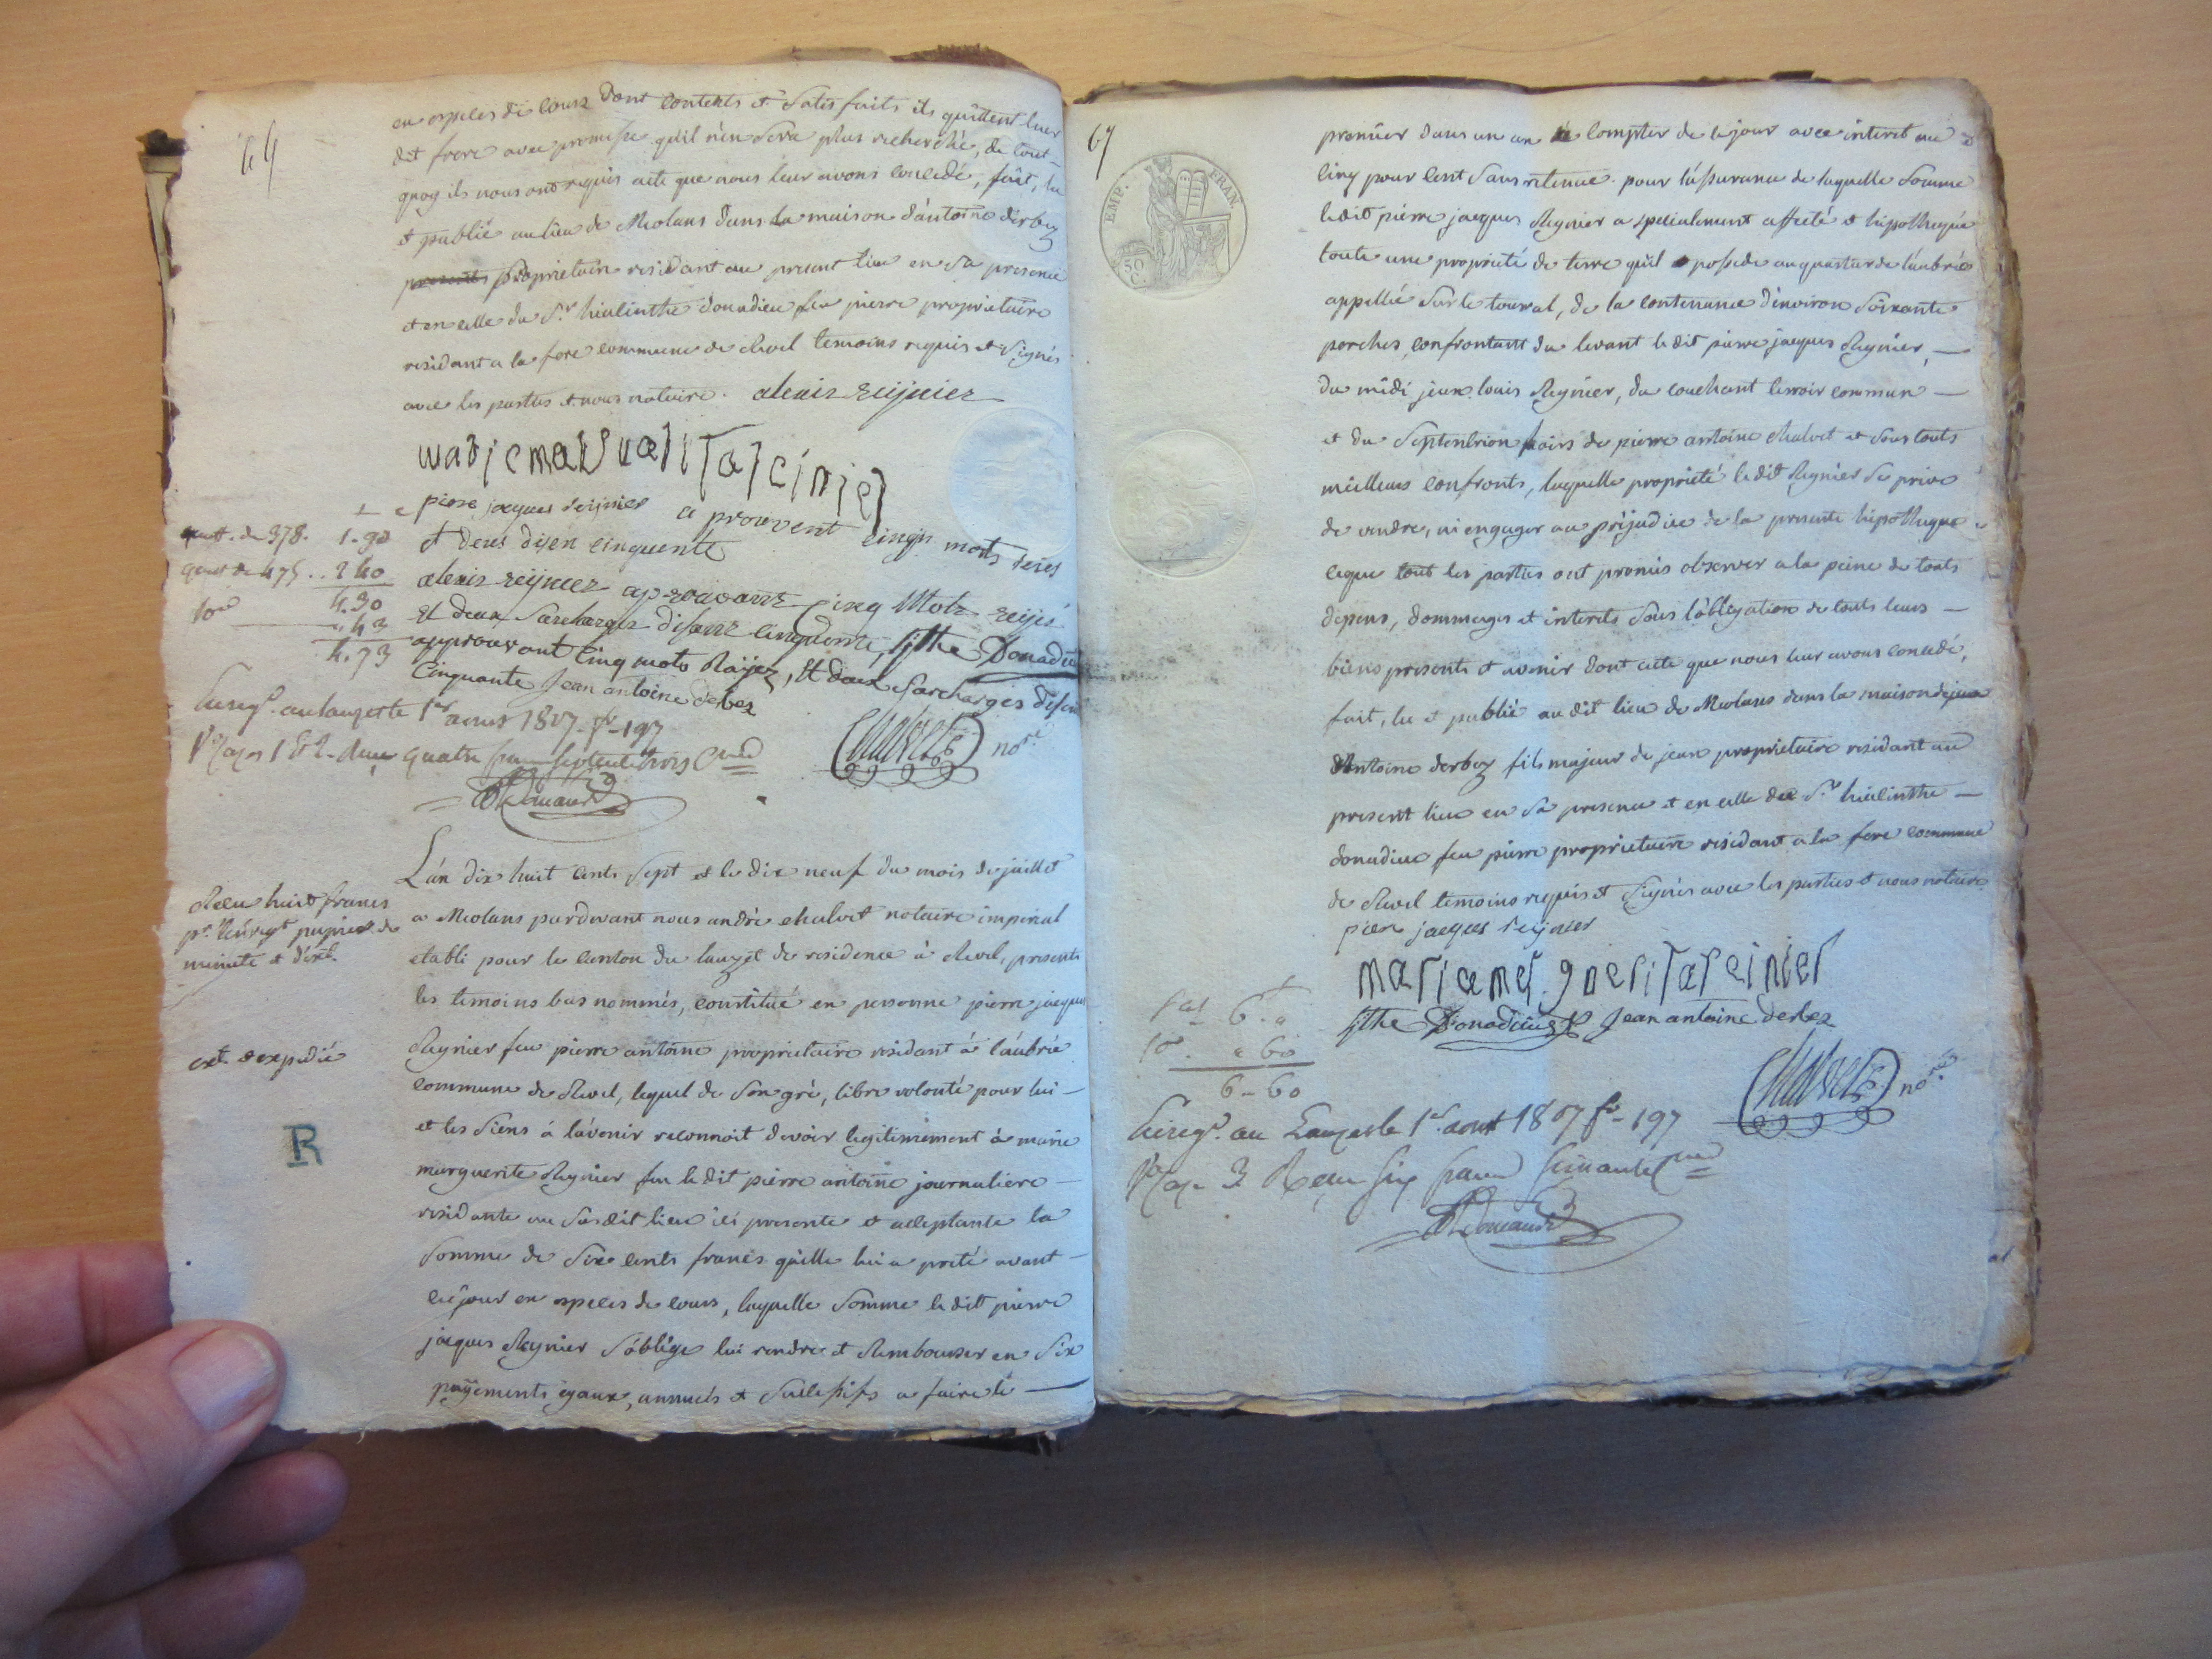 en especes de cours dont contents et satisfaits ils quittent leur
dit frere avec promesse qu'il n'en sera plus recherché, de tout
quoy ils nous ont requis acte que nous leur avons concedé, fait, lu
et publié au lieu de Meolans dans la maison d'antoine derbez
presents proprietaire residant au present lieu en sa presence
et en celle du Sr. hiacinthe donadieu feu pierre proprietaire
residant a la fore commune de Revel temoins requis et signés
avec les parties et nous notaire. alexis reijnier
pierre jacques reijnier a prouvent cinqu mots reiés
et deus disen cinquente
alexis reijnier aprouvant cinq Mots reijés
et deux sarcharges disant cinquente, jthe Donadieu
approuvant Cinq mots Raijez, et deux sarchargés disant
Cinquante Jean antoine derbez
Chalvet nore.
quitt. de 378. 1-90
quitt de 475 .. 2 40
4.30
10e .43
4.73
Enregé. au lauzet le 1er aout 1807. fo. 197
L'an dix huit cents sept et le dix neuf du mois de juillet
a Meolans pardevant nous andré chalvet notaire imperial
etabli pour le canton du lauzet de residence à Revel, presents
les temoins bas nommés, constitué en personne pierre jacques
Reynier feu pierre antoine proprietaire residant à l'aubrée
commune de Revel, lequel de son gré, libre volonté pour lui
et les siens à l'avenir reconnoit devoir legitimement à marie
marguerite Reynier feu le dit pierre antoine journaliere
residante au susdit lieu ici presente et acceptante la
somme de six cents francs qu'elle lui a preté avant
ce jour en especes de cours, laquelle somme le dit pierre
jacques Reynier s'oblige lui rendre et Rembourser en six
payements egaux, annuels et successifs a faire le
Reçu huit francs
pr. l'enregt papier de
minute et d'ext.
ext. expedié
R
67
EMP. FRAN.
50 C.
premier dans un an à compter de ce jour avec interet au
cinq pour cent sans retenue. pour l'assurance de laquelle somme
ledit pierre jacques Reynier a specialement affecté et hipothequé
toute une proprieté de terre qu'il possede au quartier de l'aubrée
appellée sur le touval, de la contenance d'environ soixante
perches, confrontant du levant le dit pierre jacques Reynier,
du midi jean louis Reynier, du couchant terroir commun
et du septentrion hoirs de pierre antoine chalvet et sous touts
meilleurs confronts, laquelle proprieté le dit Reynier se prive
de vendre, ni engager au préjudice de la presente hipotheque
ceque tout les parties ont promis observer a la peine de touts
depens, dommages et interets sous l'obligation de touts leurs
biens presents et avenir dont acte que nous leur avons concedé,
fait, lu et publié au dit lieu de Meolans dans la maison de jean
Antoine derbez fils majeur de jean proprietaire residant au
present lieu en sa presence et en celle du Sr. hiacinthe
donadieu feu pierre proprietaire residant a la fore commune
de Revel temoins requis et signés avec les parties et nous notaire
piere jacques reijnier
mariamargueritareinier
jthe Donadieu Jean antoine derbez
Chalvet nore.
6 . "
10e. " 60
6 - 60
Enregé. au Lauzet le 1er. aout 1807 fo. 197